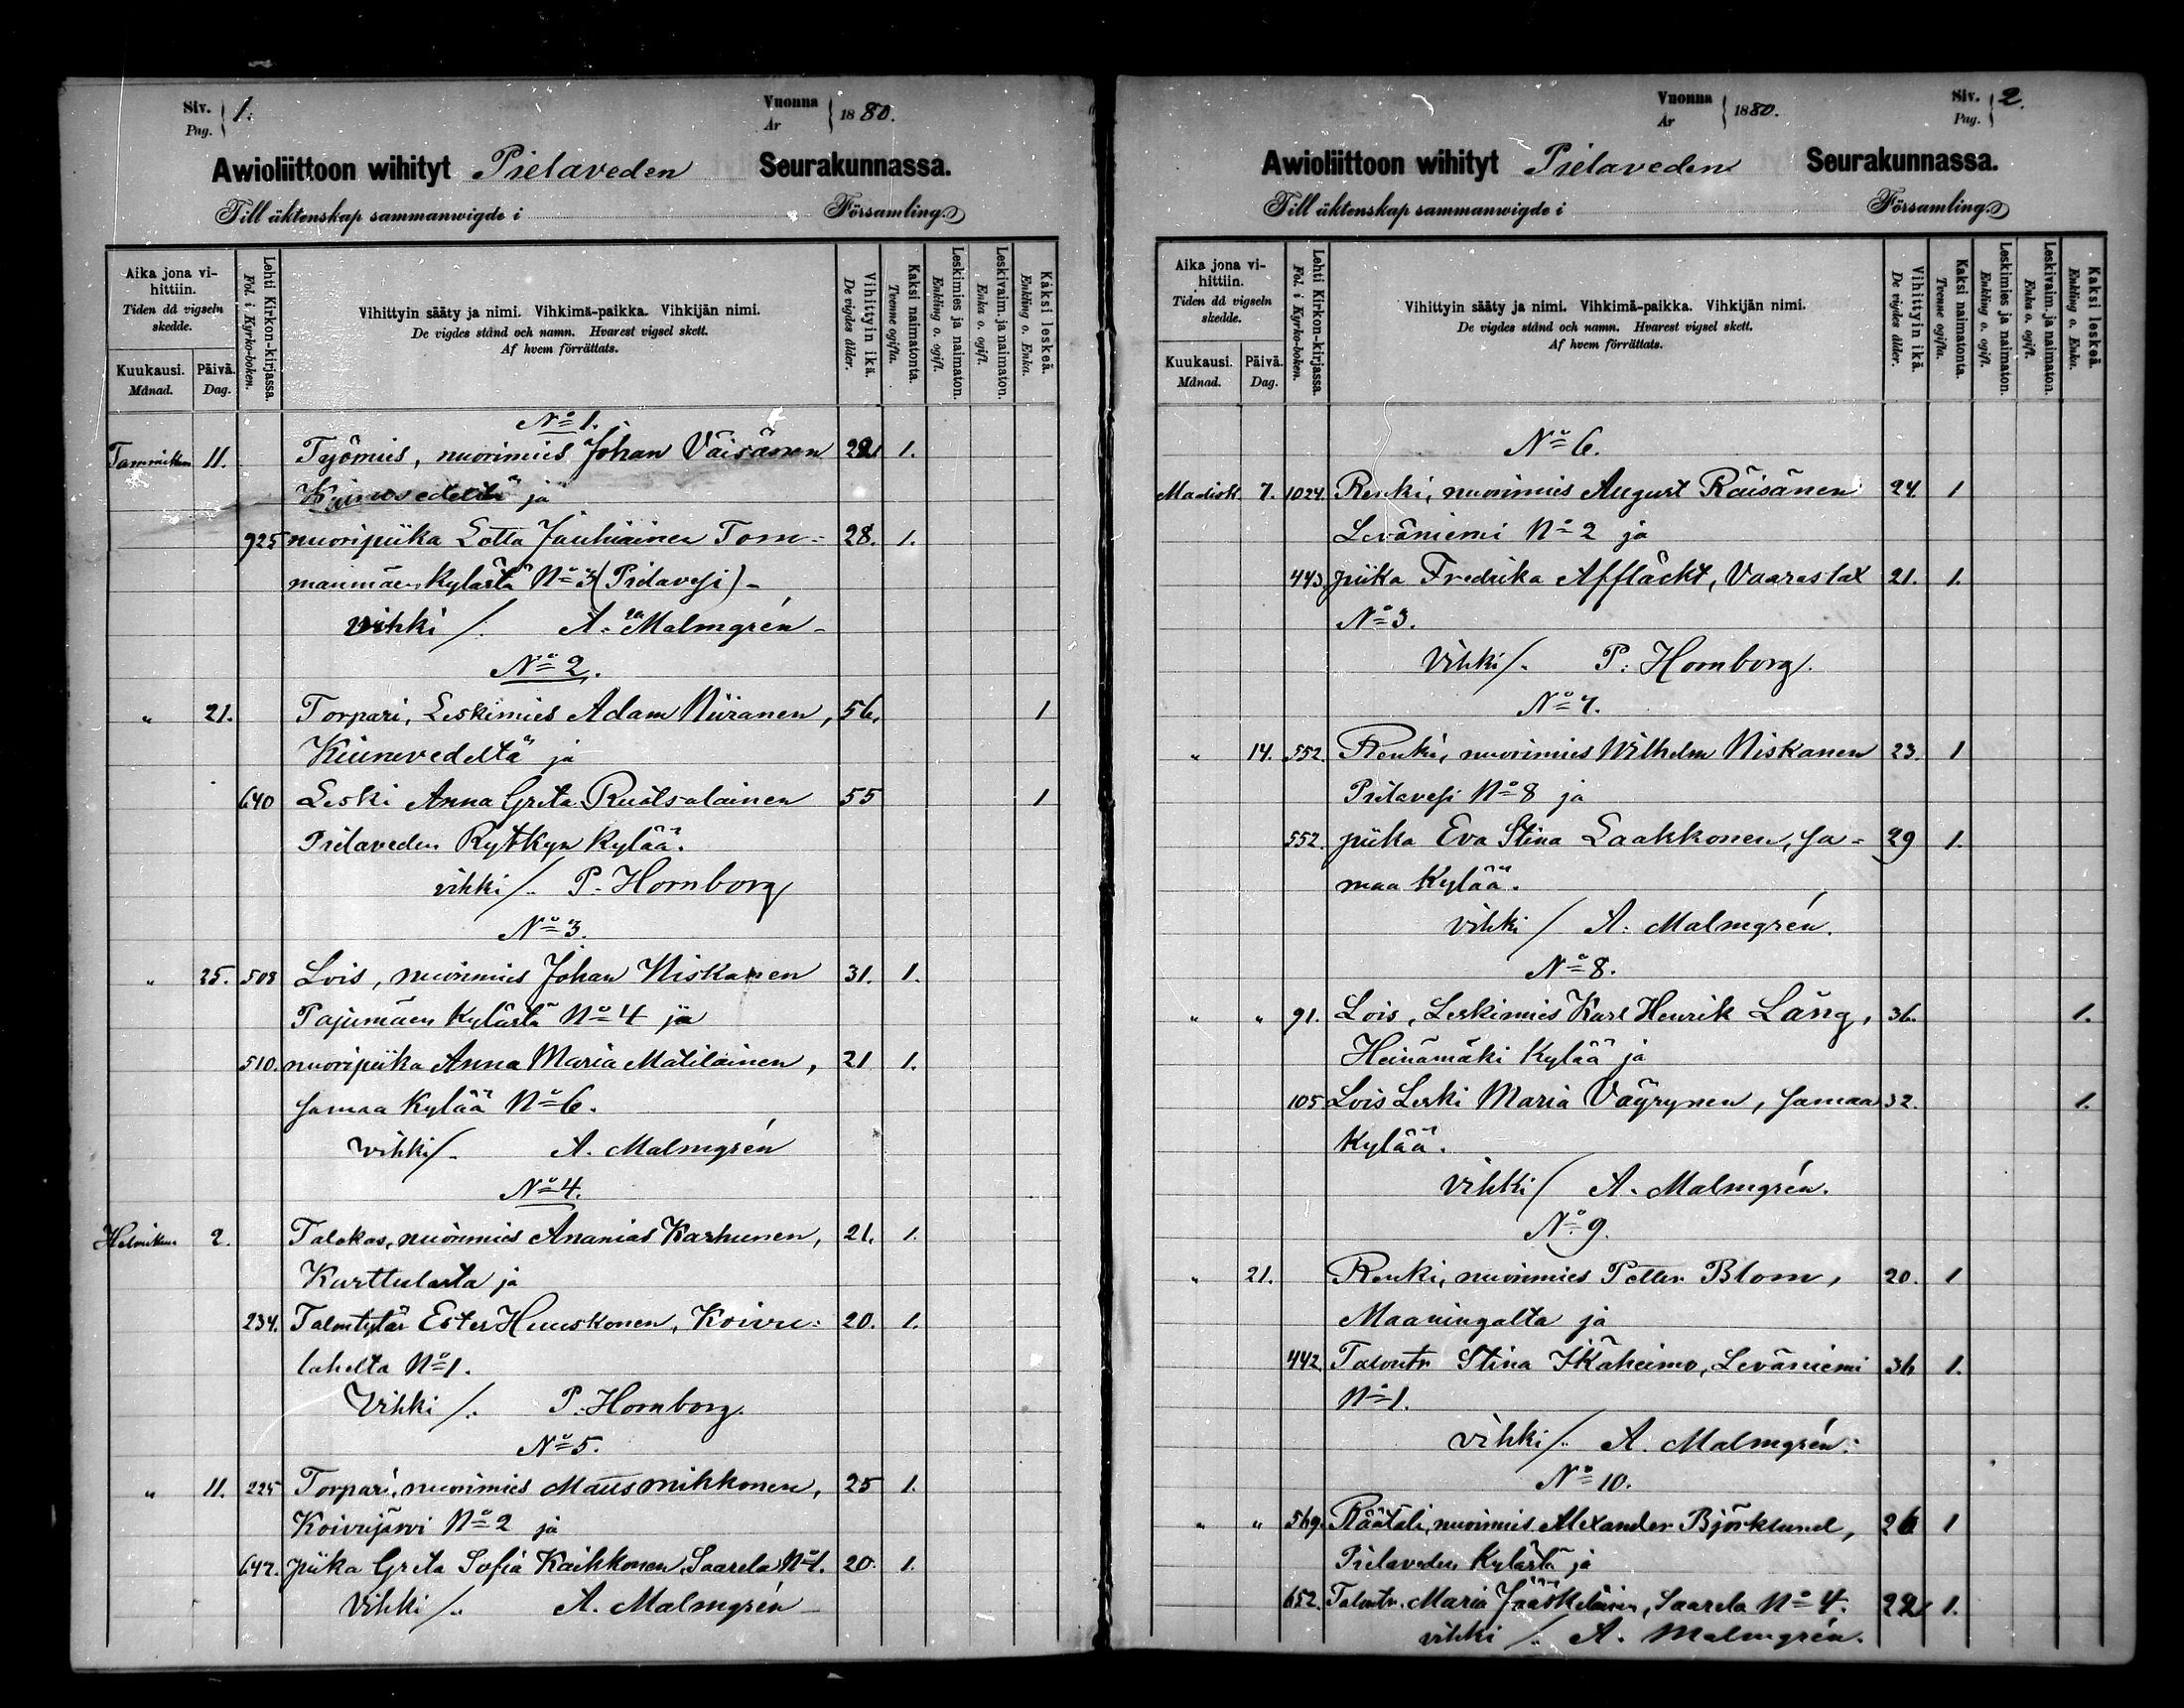 Siv. Pag. 1.
Vuonna År 1880.
Awioliittoon wihityt Pielaveden Seurakunnassa.
Till äktenskap sammanwigde i Församling.
Aika jona vihittiin.
Tiden då vigseln skedde.
Kuukausi. Månad.
Päivä. Dag.
Lehti Kirkon-kirjassa.
Fol. i Kyrko-boken.
Vihittyin sääty ja nimi. Vihkimä-paikka. Vihkijän nimi.
De vigdes stånd och namn. Hvarest vigsel skett.
Af hvem förrättats.
Vihittyin ikä.
De vigdes ålder.
Kaksi naimatonta.
Tvenne ogifta.
Leskimies ja naimaton.
Enkling o. ogift.
Leskivaim. ja naimaton.
Enka o. ogift.
Kaksi leskeä.
Enkling o. Enka.
No 1.
11. Työmies, nuorimies Johan Väisänen 1.
ja
925 nuoripiika Lotta Jauhiainen Tom= 28. 1.
manmäen kylästä No 3 (Pielavesi) -
vihki /. A. Malmgrén -
No 2.
" 21. Torpari, Leskimies Adam Niiranen, 56. 1
Kiuruvedeltä ja
640 Leski Anna Greta Ruotsalainen 55 1
Pielaveden Rytkyn kylää.
vihki /.. P. Hornborg
No 3.
" 25. 508 Lois, nuorimies Johan Niskanen 31. 1.
Pajumäen kylästä No 4 ja
510. nuoripiika Anna Maria Mätiläinen, 21 1.
samaa kylää No 6.
vihki /. A. Malmgrén
No 4.
2. Talokas, nuorimies Ananias Karhunen, 21. 1.
Karttulasta ja
234. Talontytär Ester Huuskonen, Koivu= 20. 1.
lahelta No 1.
Vihki /.. P. Hornborg.
No 5.
" 11. 225 Torpari, nuorimies Matts Mikkonen, 25 1.
Koivujärvi No 2 ja
647. piika Greta Sofia Kaikkonen, Saarela No 1. 20. 1.
Vihki /.. A. Malmgrén
Siv. Pag. 2.
Vuonna År 1880.
Awioliittoon wihityt Pielaveden Seurakunnassa.
Till äktenskap sammanwigde i Församling.
Aika jona vihittiin.
Tiden då vigseln skedde.
Kuukausi. Månad.
Päivä. Dag.
Lehti Kirkon-kirjassa.
Fol. i Kyrko-boken.
Vihittyin sääty ja nimi. Vihkimä-paikka. Vihkijän nimi.
De vigdes stånd och namn. Hvarest vigsel skett.
Af hvem förrättats.
Vihittyin ikä.
De vigdes ålder.
Kaksi naimatonta.
Tvenne ogifta.
Leskimies ja naimaton.
Enkling o. ogift.
Leskivaim. ja naimaton.
Enka o. ogift.
Kaksi leskeä.
Enkling o. Enka.
No 6.
Maalisk. 7. 1024. Renki, nuorimies August Räisänen 24. 1
Leväniemi No 2 ja
443. piika Fredrika Affläckt, Vaaraslax 21. 1.
No 3.
Vihki /. P. Hornborg.
No 7.
" 14. 552. Renki, nuorimies Wilhelm Niskanen 23. 1
Pielavesi No 8 ja
552. piika Eva Stina Laakkonen, sa= 29 1.
maa kylää.
vihki / A. Malmgrén.
No 8.
" " 91. Lois, Leskimies Karl Henrik Lång, 36. 1.
Heinämäki kylää ja
105 Lois Leski Maria Väyrynen, samaa 32. 1.
kylää.
Vihki / A. Malmgrén.
No 9.
" 21. Renki, nuorimies Petter Blom, 20. 1
Maaningalta ja
442. Talontr Stina Ikäheimo, Leväniemi 36 1.
No 1.
vihki /.. A. Malmgrén.
No 10.
" " 569. Räätäli, nuorimies Alexander Björklund, 26 1
Pielaveden kylästä ja
652. Talontr. Maria Jääskeläinen, Saarela No 4. 22 1.
vihki /. A. Malmgrén.